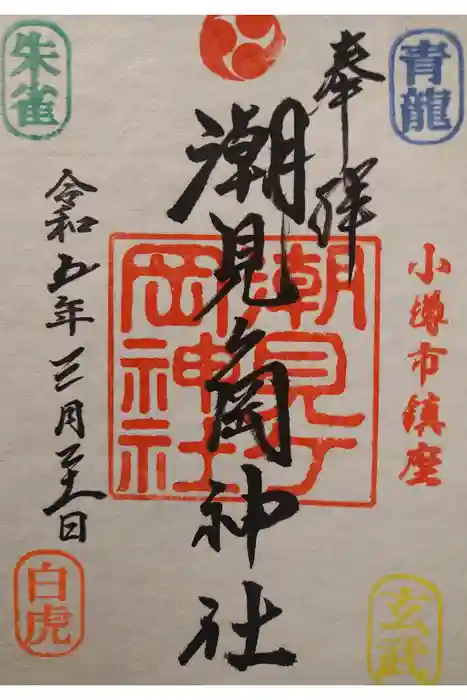 青龍
奉拝
小樽市鎮座
潮見ヶ岡神社
潮見ヶ
岡神社
朱雀
令和五年三月二十一日
玄武
白虎